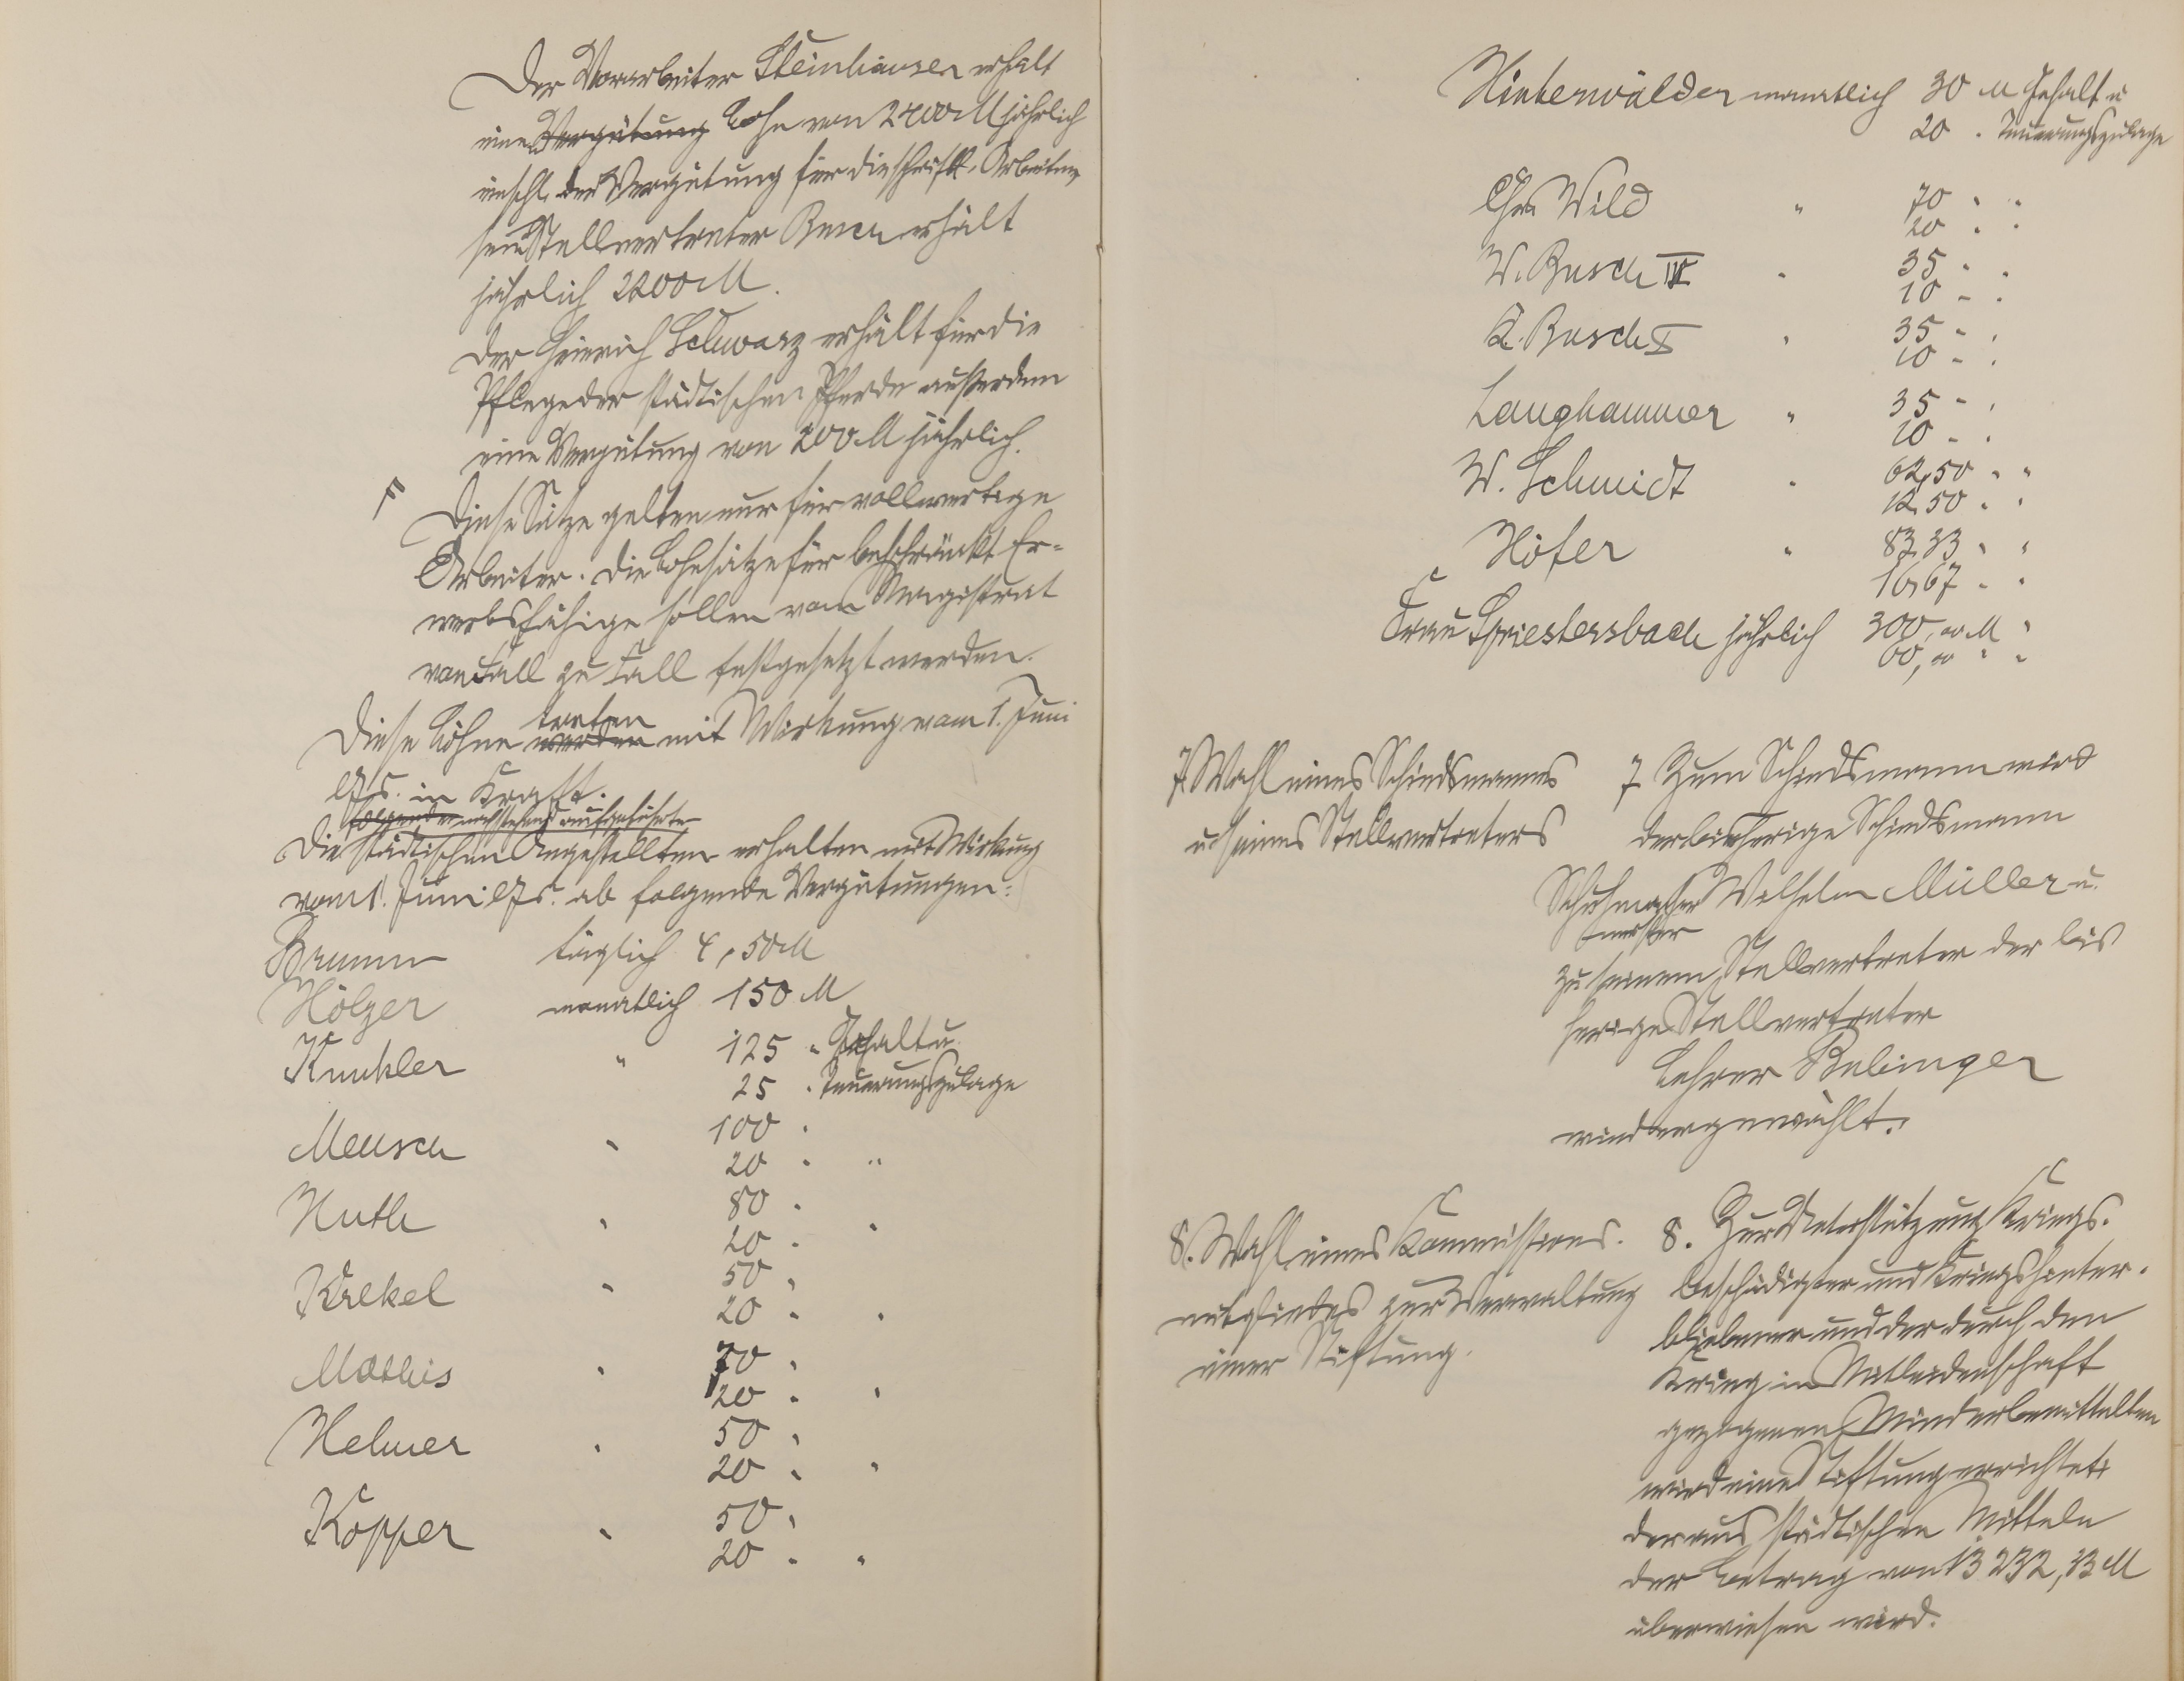 Der Vorarbeiter Steinhauser erhält
eine Vergütung Lohn von 2400 M jährlich
einschl. der Vergütung für die schriftl. Arbeiten,
sein Stellvertreter erhält
jährlich 2200 M.
Der Heinrich Schwarz erhält für die
Pflege der städtischen Pferde außerdem
eine Vergütung von 200 M jährlich.
F Diese Sätze gelten nur für vollwertige
Arbeiter. Die Lohnsätze für beschränkt Er-
werbsfähige sollen vom Magistrat
von Fall zu Fall festgesetzt werden.
treten
Diese Löhne werden mit Wirkung vom 1. Juni
lfs. in Kraft.
folgenden nachstehend aufgeführten
Die städtischen Angestellten erhalten mit Wirkung
vom 1. Juni lfs. ab folgende Vergütungen:
Brumm täglich 4,50 M
Hölzer monatlich 150 M
Kunkler " 125 " Gehalt u.
25 " Teuerungszulage
Mensch " 100 "
20 " "
Huth " 80 "
20 " "
Krekel " 50 "
20 " "
Mathis " 70 "
20 " "
Helmer " 50 "
20 " "
Kopper " 50 "
20 " "
Hinterwälder monatlich 30 M Gehalt u
20 " Teuerungszulage
Chr. Wild " 70 " "
20 " "
W. Busch III " 35 " "
10 " "
K. Busch I " 35 " "
10 " "
Langhammer " 35 " "
10 " "
W. Schmidt " 62,50 " "
12,50 " "
Höfer " 83,33 " "
16,67 " "
Frau Spriestersbach jährlich 300,00 M "
60,00 " "
7 Wahl eines Schiedsmannes
u. seines Stellvertreters
7 Zum Schiedsmann wird
der bisherige Schiedsmann
Schuhmacher Wilhelm Müller u.
meister
zu seinem Stellvertreter der bis
herige Stellvertreter
Lehrer Bebinger
wiedergewählt.
8. Wahl eines Kommissions-
mitgliedes zur Verwaltung
einer Stiftung.
8. Zur Unterstützung Kriegs-
beschädigter und Kriegshinter-
bliebener und der durch den
Krieg in Mitleidenschaft
gezogenen Minderbemittelten
wird eine Stiftung errichtet,
der aus städtischen Mitteln
der Betrag von 13 232,33 M
überwiesen wird.